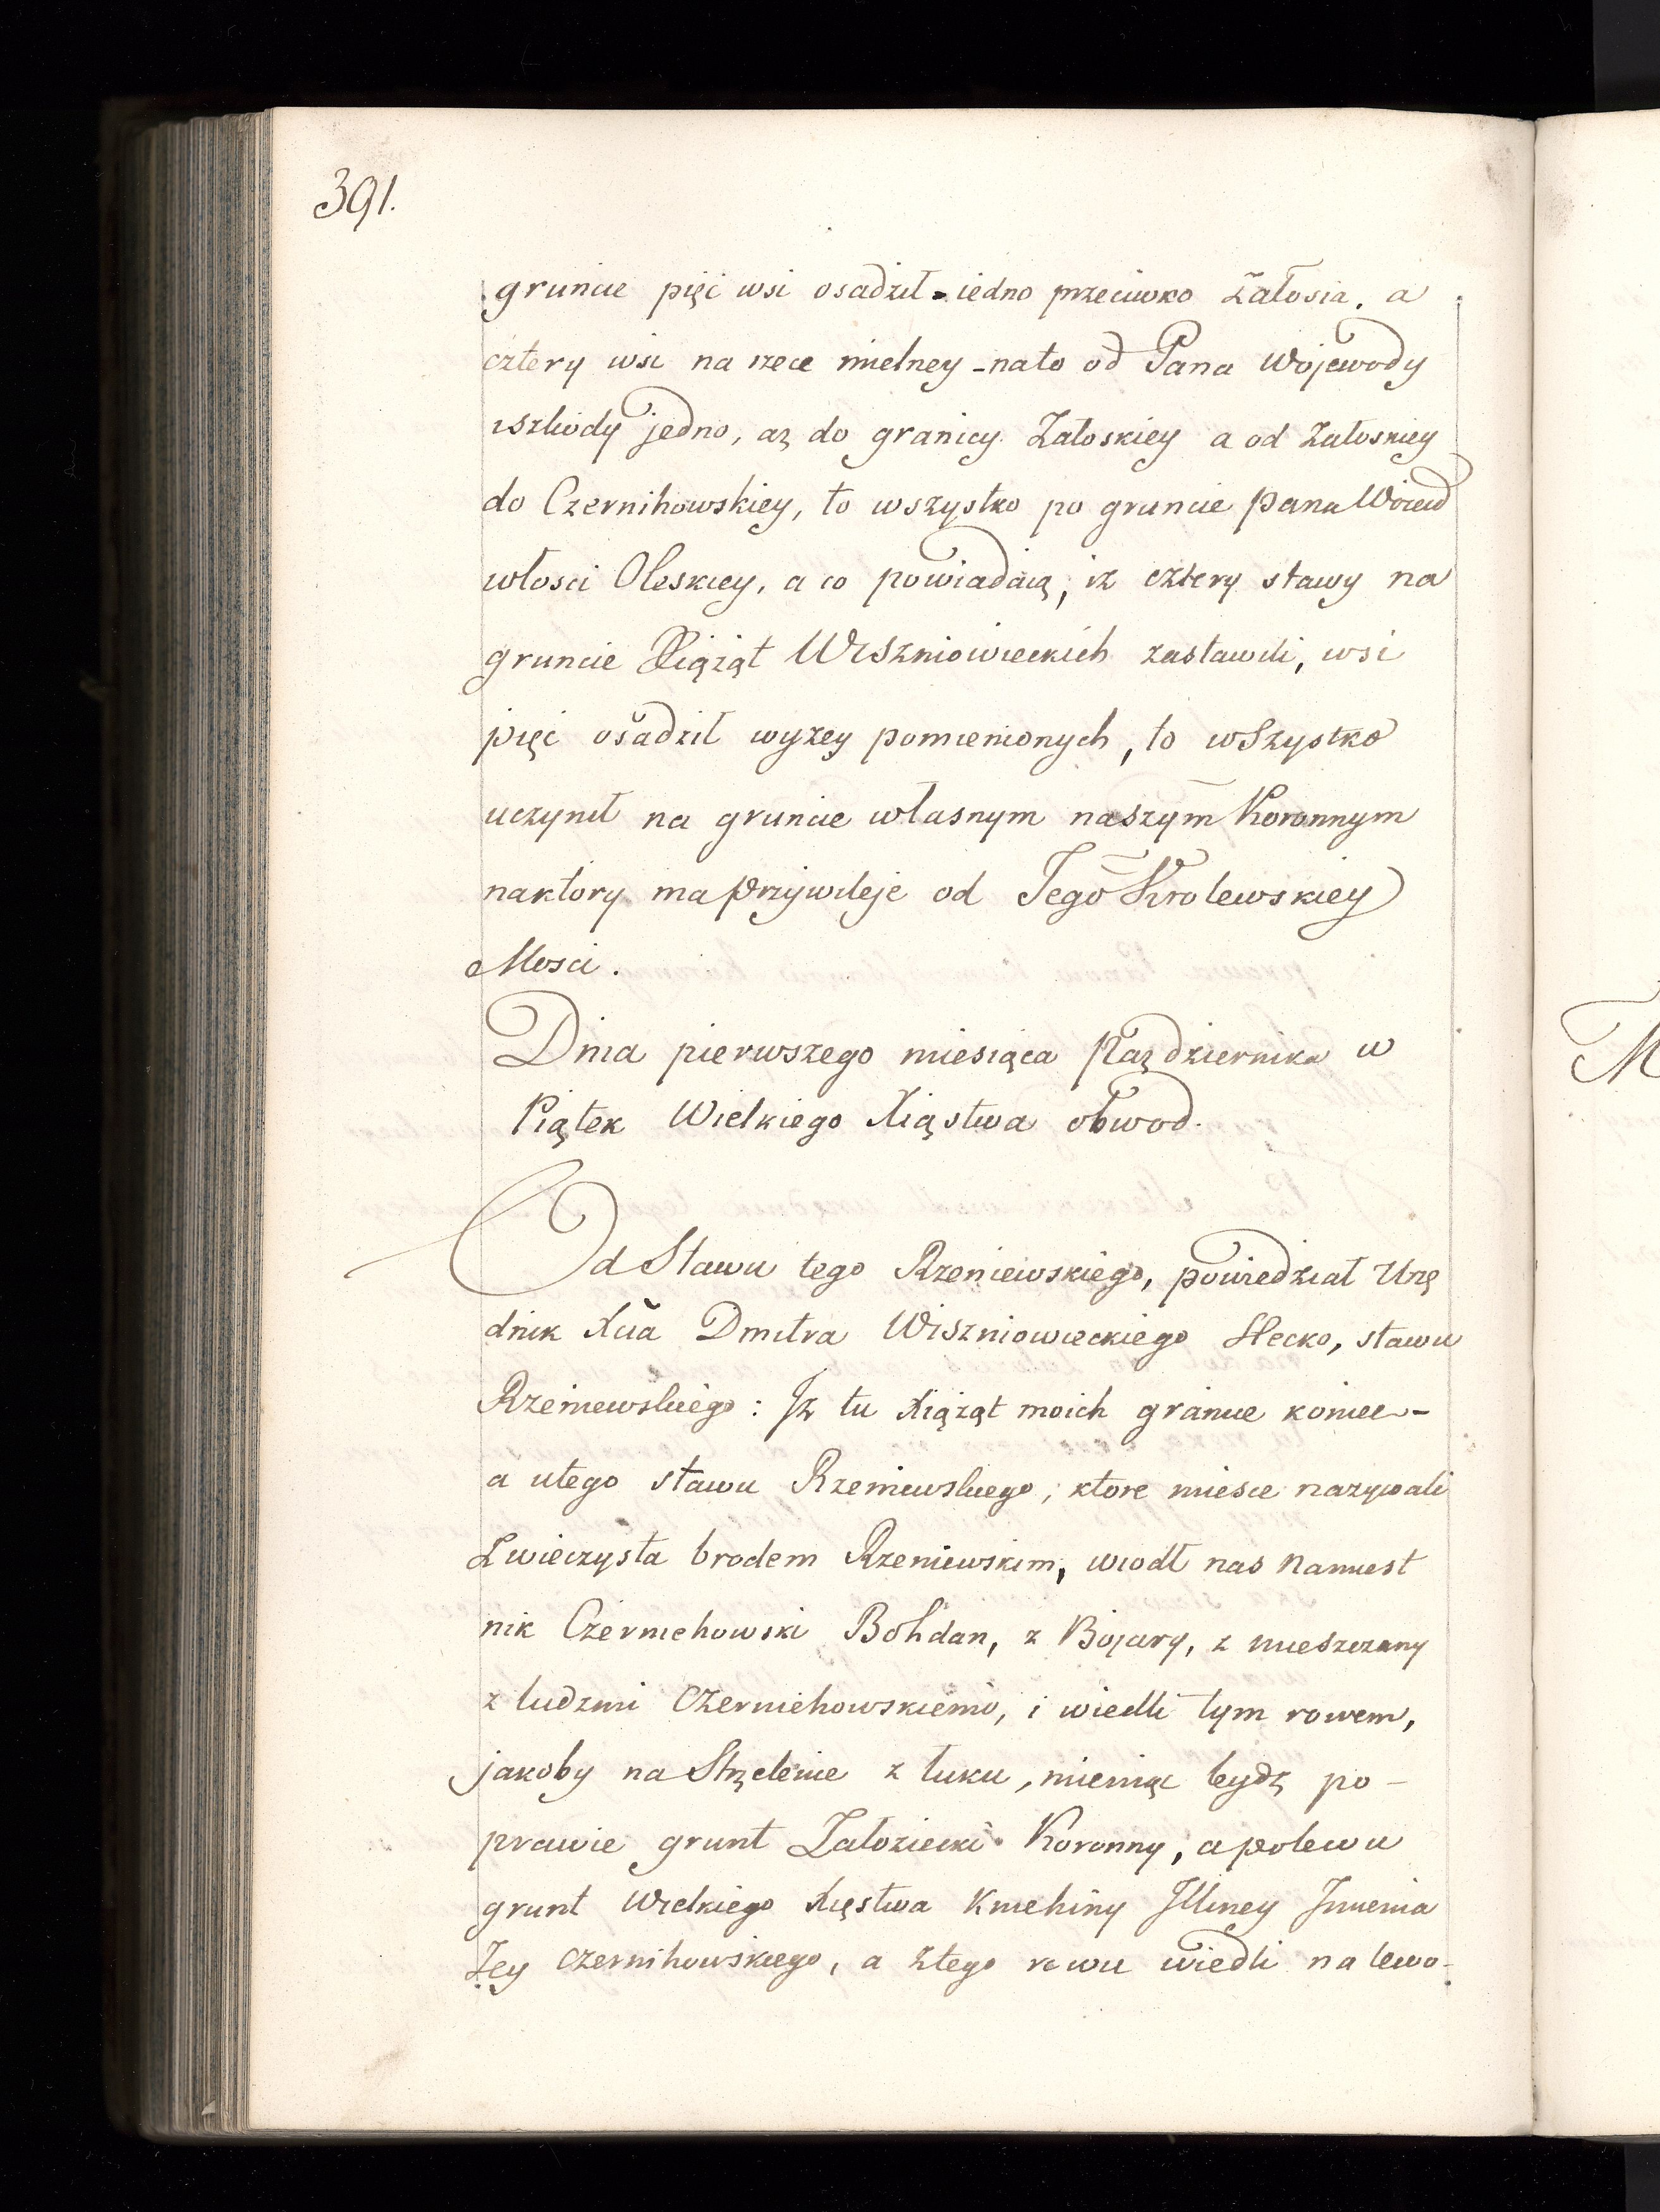 391.
gruncie pięć wsi osadził - iedno przeciwko Załosia. a
cztery wsi na rzece mielney - nato od Pana Wojewody
wszkody jedno, aż do granicy Załoskiey a od Załoskiey
do Czernihowskiey, to wszystko po gruncie Pana Woiewd
włosci Oleskiey, a co powiadaią, iz cztery stawy na
gruncie Xiążąt Wiszniowieckich zastawili, wsi
pięć osadził wyzey pomienionych, to wszystko
uczynił na gruncie własnym naszym Koronnym
naktory ma przywileje od Jego Krolewskiey
Mosci.
Dnia pierwszego miesiąca Pazdziernika w
Piątek Wielkiego Xiąstwa obwod.
Od Stawu tego Rzeniewskiego, powiedział Urzę
dnik Xcia Dmitra Wiszniowieckiego Stecko, stawu
Rzeniewskiego: Iz tu Xiążąt moich granice koniec -
a utego stawu Rzeniewskiego, ktore miesce nazywali
Zwieczysta brodem Rzeniewskim, wiodł nas Namiest
nik Czerniehowski Bohdan, z Bojary, z mieszczany
z ludzmi Czerniehowskiemi, i wiedli tym rowem,
jakoby na Strzelenie z łuku, mieniąc bydz po -
prawie grunt Załoziecki Koronny, apolewu
grunt Wielkiego Xięstwa Kniehiny Illiney Imienia
Jey Czernihowskiego, a ztego rowu wiedli na lewo -
M